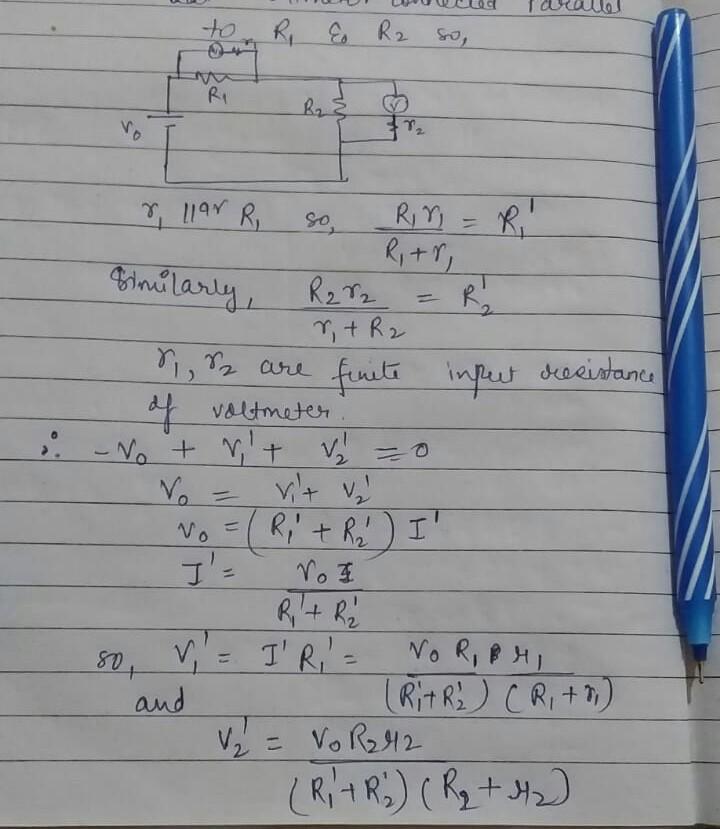 connected Parallel
to R₁ & R₂ so,
R₁
V₀
R₂
V
r₂
r₁ ||ar R₁ so, R₁r₁ / R₁+r₁ = R₁'
Similarly, R₂r₂ / r₁+R₂ = R₂'
r₁, r₂ are finite input resistance
of voltmeter.
∴ -V₀ + V₁' + V₂' = 0
V₀ = V₁' + V₂'
V₀ = (R₁' + R₂') I'
I' = V₀ / R₁' + R₂'
so, V₁' = I' R₁' = V₀ R₁ r₁ / (R₁'+R₂') (R₁+r₁)
and
V₂' = V₀R₂r₂ / (R₁'+R₂') (R₂+r₂)